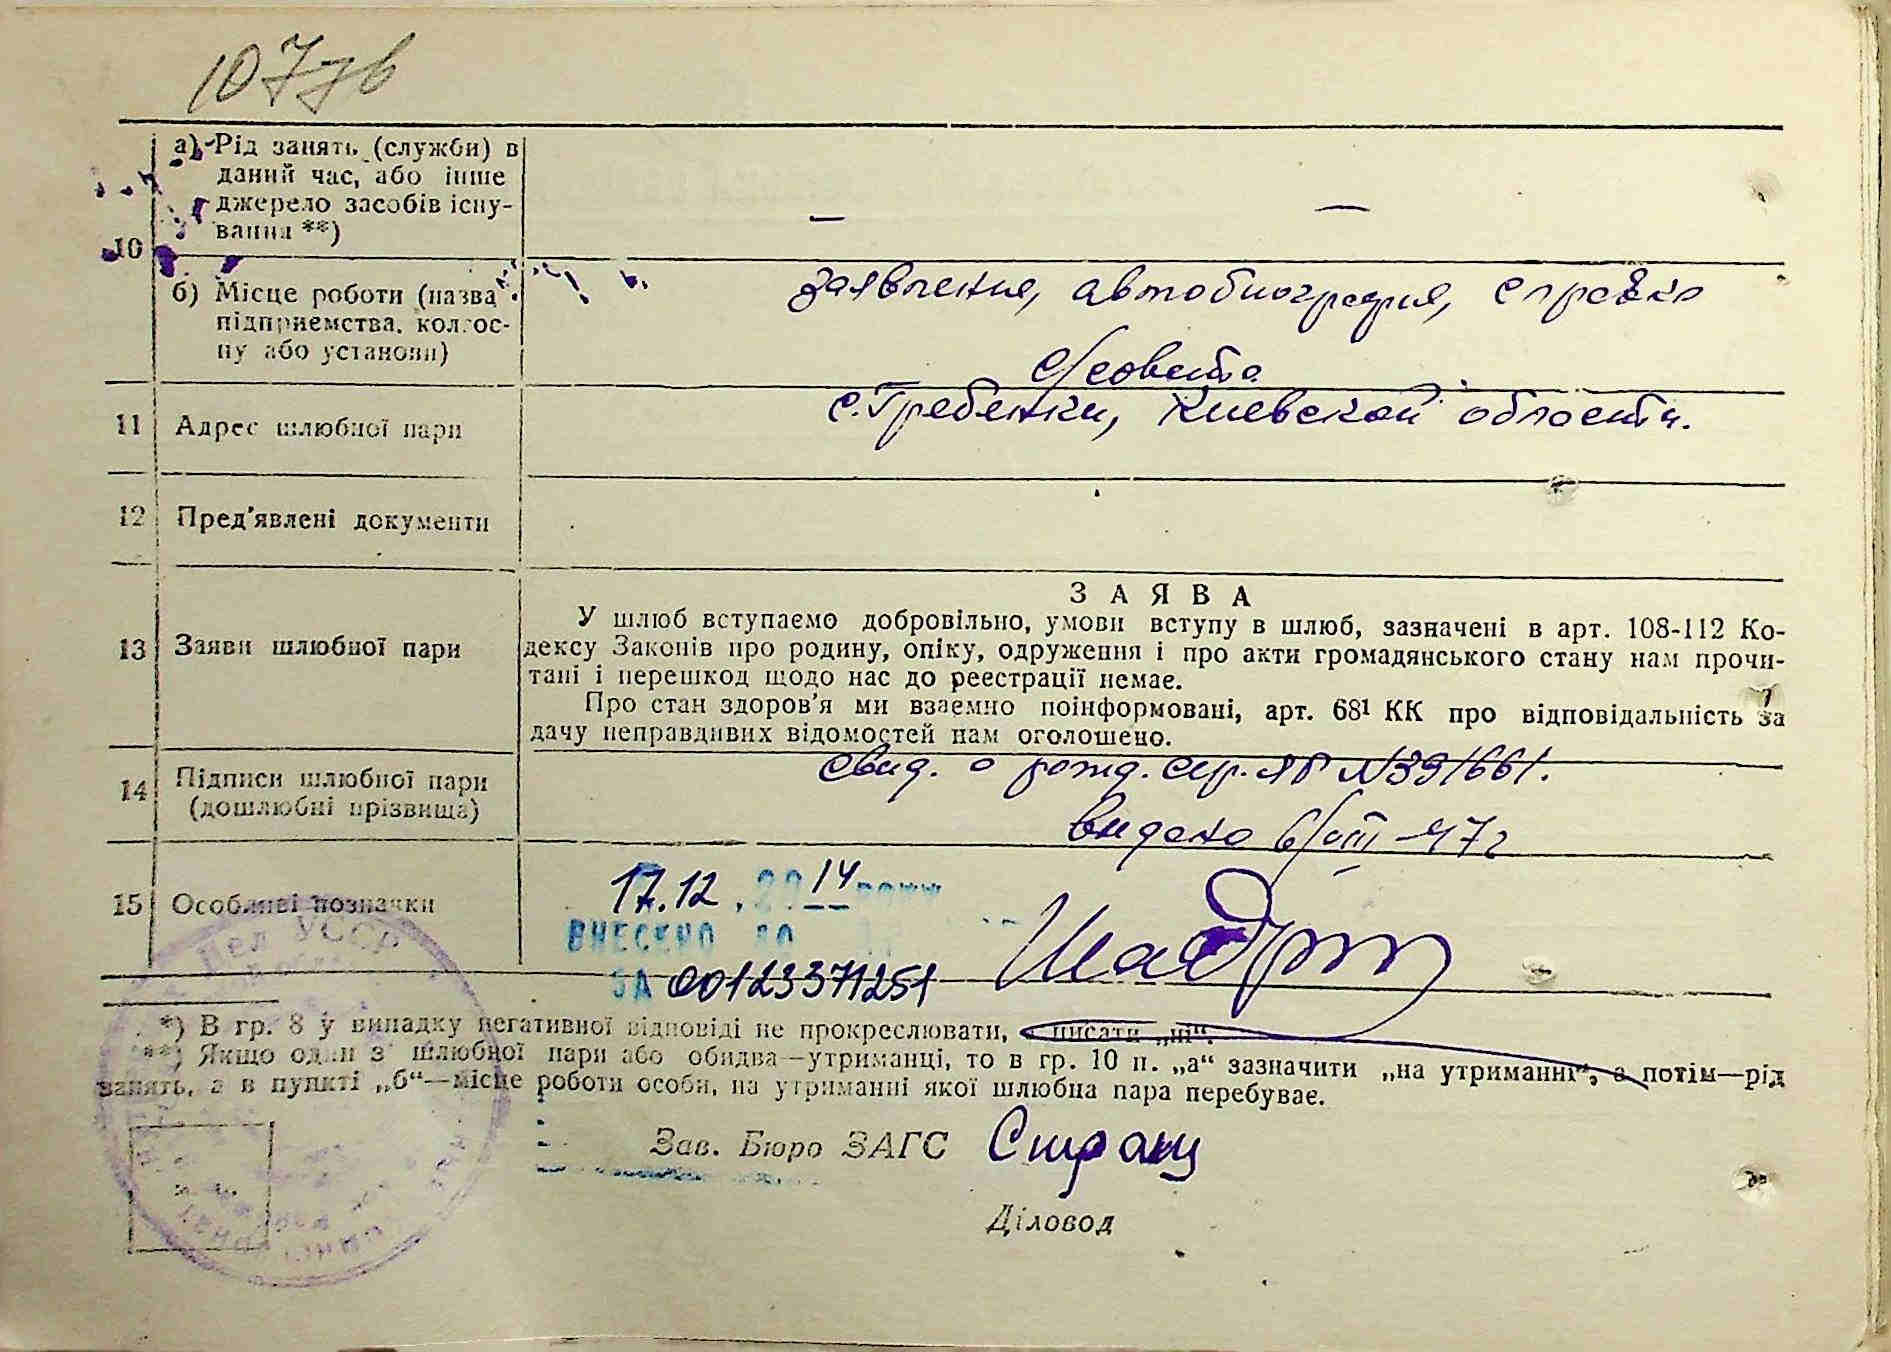 а) Рід занять (служби) в
даний час, або інше
джерело засобів існу-
вання **)
— —
10
б) Місце роботи (назва
підприємства, колгос-
пу або установи)
заявления, автобиография, справка
с/совета
11 Адрес шлюбної пари
с. Гребенки, Киевской области.
12 Пред'явлені документи
13 Заяви шлюбної пари
ЗАЯВА
У шлюб вступаємо добровільно, умови вступу в шлюб, зазначені в арт. 108-112 Ко-
дексу Законів про родину, опіку, одруження і про акти громадянського стану нам прочи-
тані і перешкод щодо нас до реестрації немає.
Про стан здоров'я ми взаємно поінформовані, арт. 68¹ КК про відповідальність за
дачу неправдивих відомостей нам оголошено.
14 Підписи шлюбної пари
(дошлюбні прізвища)
свид. о рожд. сер. ЯР №391661.
видано 6/VIII-47г
15 Особливі позначки
17.12.2014 року
ВНЕСЕНО ДО
ЗА 00123371251
*) В гр. 8 у випадку негативної відповіді не прокреслювати, а писати „ні“.
**) Якщо один з шлюбної пари або обидва—утриманці, то в гр. 10 п. „а“ зазначити „на утриманні“, а потім—рід
занять, а в пункті „б“—місце роботи особи, на утриманні якої шлюбна пара перебуває.
Зав. Бюро ЗАГС
Діловод
УССР